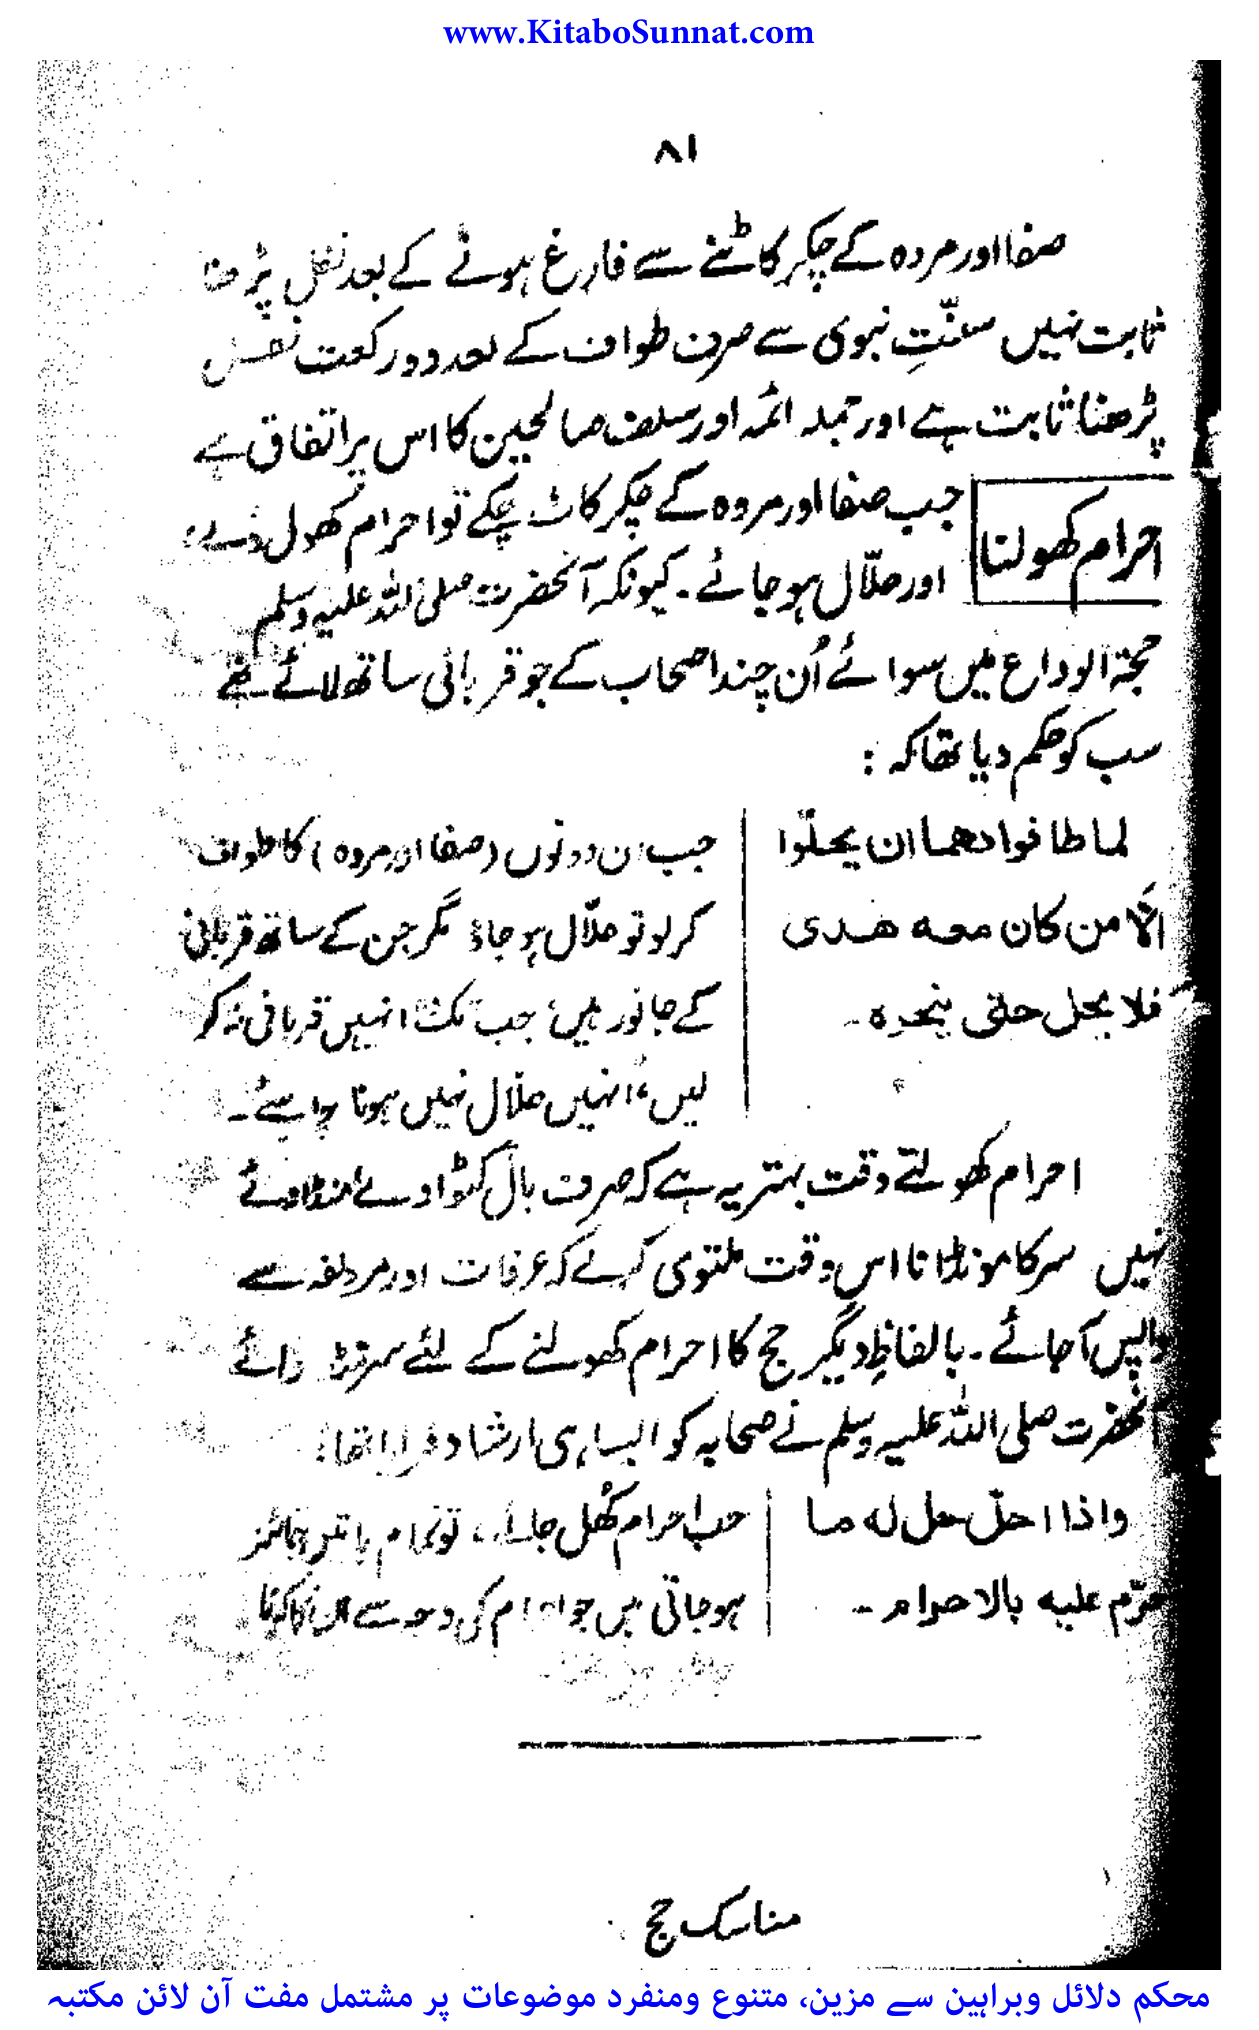 www.KitaboSunnat.com
۸۱
صفا اور مروہ کے چکر کاٹنے سے فارغ ہونے کے بعد نفل پڑھنا
ثابت نہیں سنّتِ نبوی سے صرف طواف کے بعد دو رکعت نفل
پڑھنا ثابت ہے اور جملہ ائمہ اور سلف صالحین کا اس پر اتفاق ہے
احرام کھولنا
جب صفا اور مروہ کے چکر کاٹ چکے تو احرام کھول دے،
اور حلّال ہو جائے۔ کیونکہ آنحضرت صلی اللہ علیہ وسلم
حجۃ الوداع میں سوائے اُن چند اصحاب کے جو قربانی ساتھ لائے تھے
سب کو حکم دیا تھا کہ :
لما طافوا بهما ان يحلّوا
الّا من كان معه هدى
فلا يحل حتى ينحره ۔
جب ان دونوں (صفا اور مروہ) کا طواف
کر لو تو حلّال ہو جاؤ مگر جن کے ساتھ قربانی
کے جانور ہیں جب تک انہیں قربانی نہ کر
لیں، انہیں حلّال نہیں ہونا چاہئے۔
احرام کھولتے وقت بہتر یہ ہے کہ صرف بال کٹوا دے منڈوائے
نہیں سر کا مونڈانا اس وقت ملتوی کرے کہ عرفات اور مزدلفہ سے
واپس آجائے۔ بالفاظِ دیگر حج کا احرام کھولنے کے لئے سر منڈوائے
آنحضرت صلی اللہ علیہ وسلم نے صحابہ کو ایسا ہی ارشاد فرمایا تھا:
واذا احلّ حل له ما
حرّم عليه بالاحرام ۔
جب احرام کھل جائے، تو تمام باتیں جائز
ہو جاتی ہیں جو احرام کی وجہ سے
مناسک حج
محکم دلائل وبراہین سے مزین، متنوع ومنفرد موضوعات پر مشتمل مفت آن لائن مکتبہ